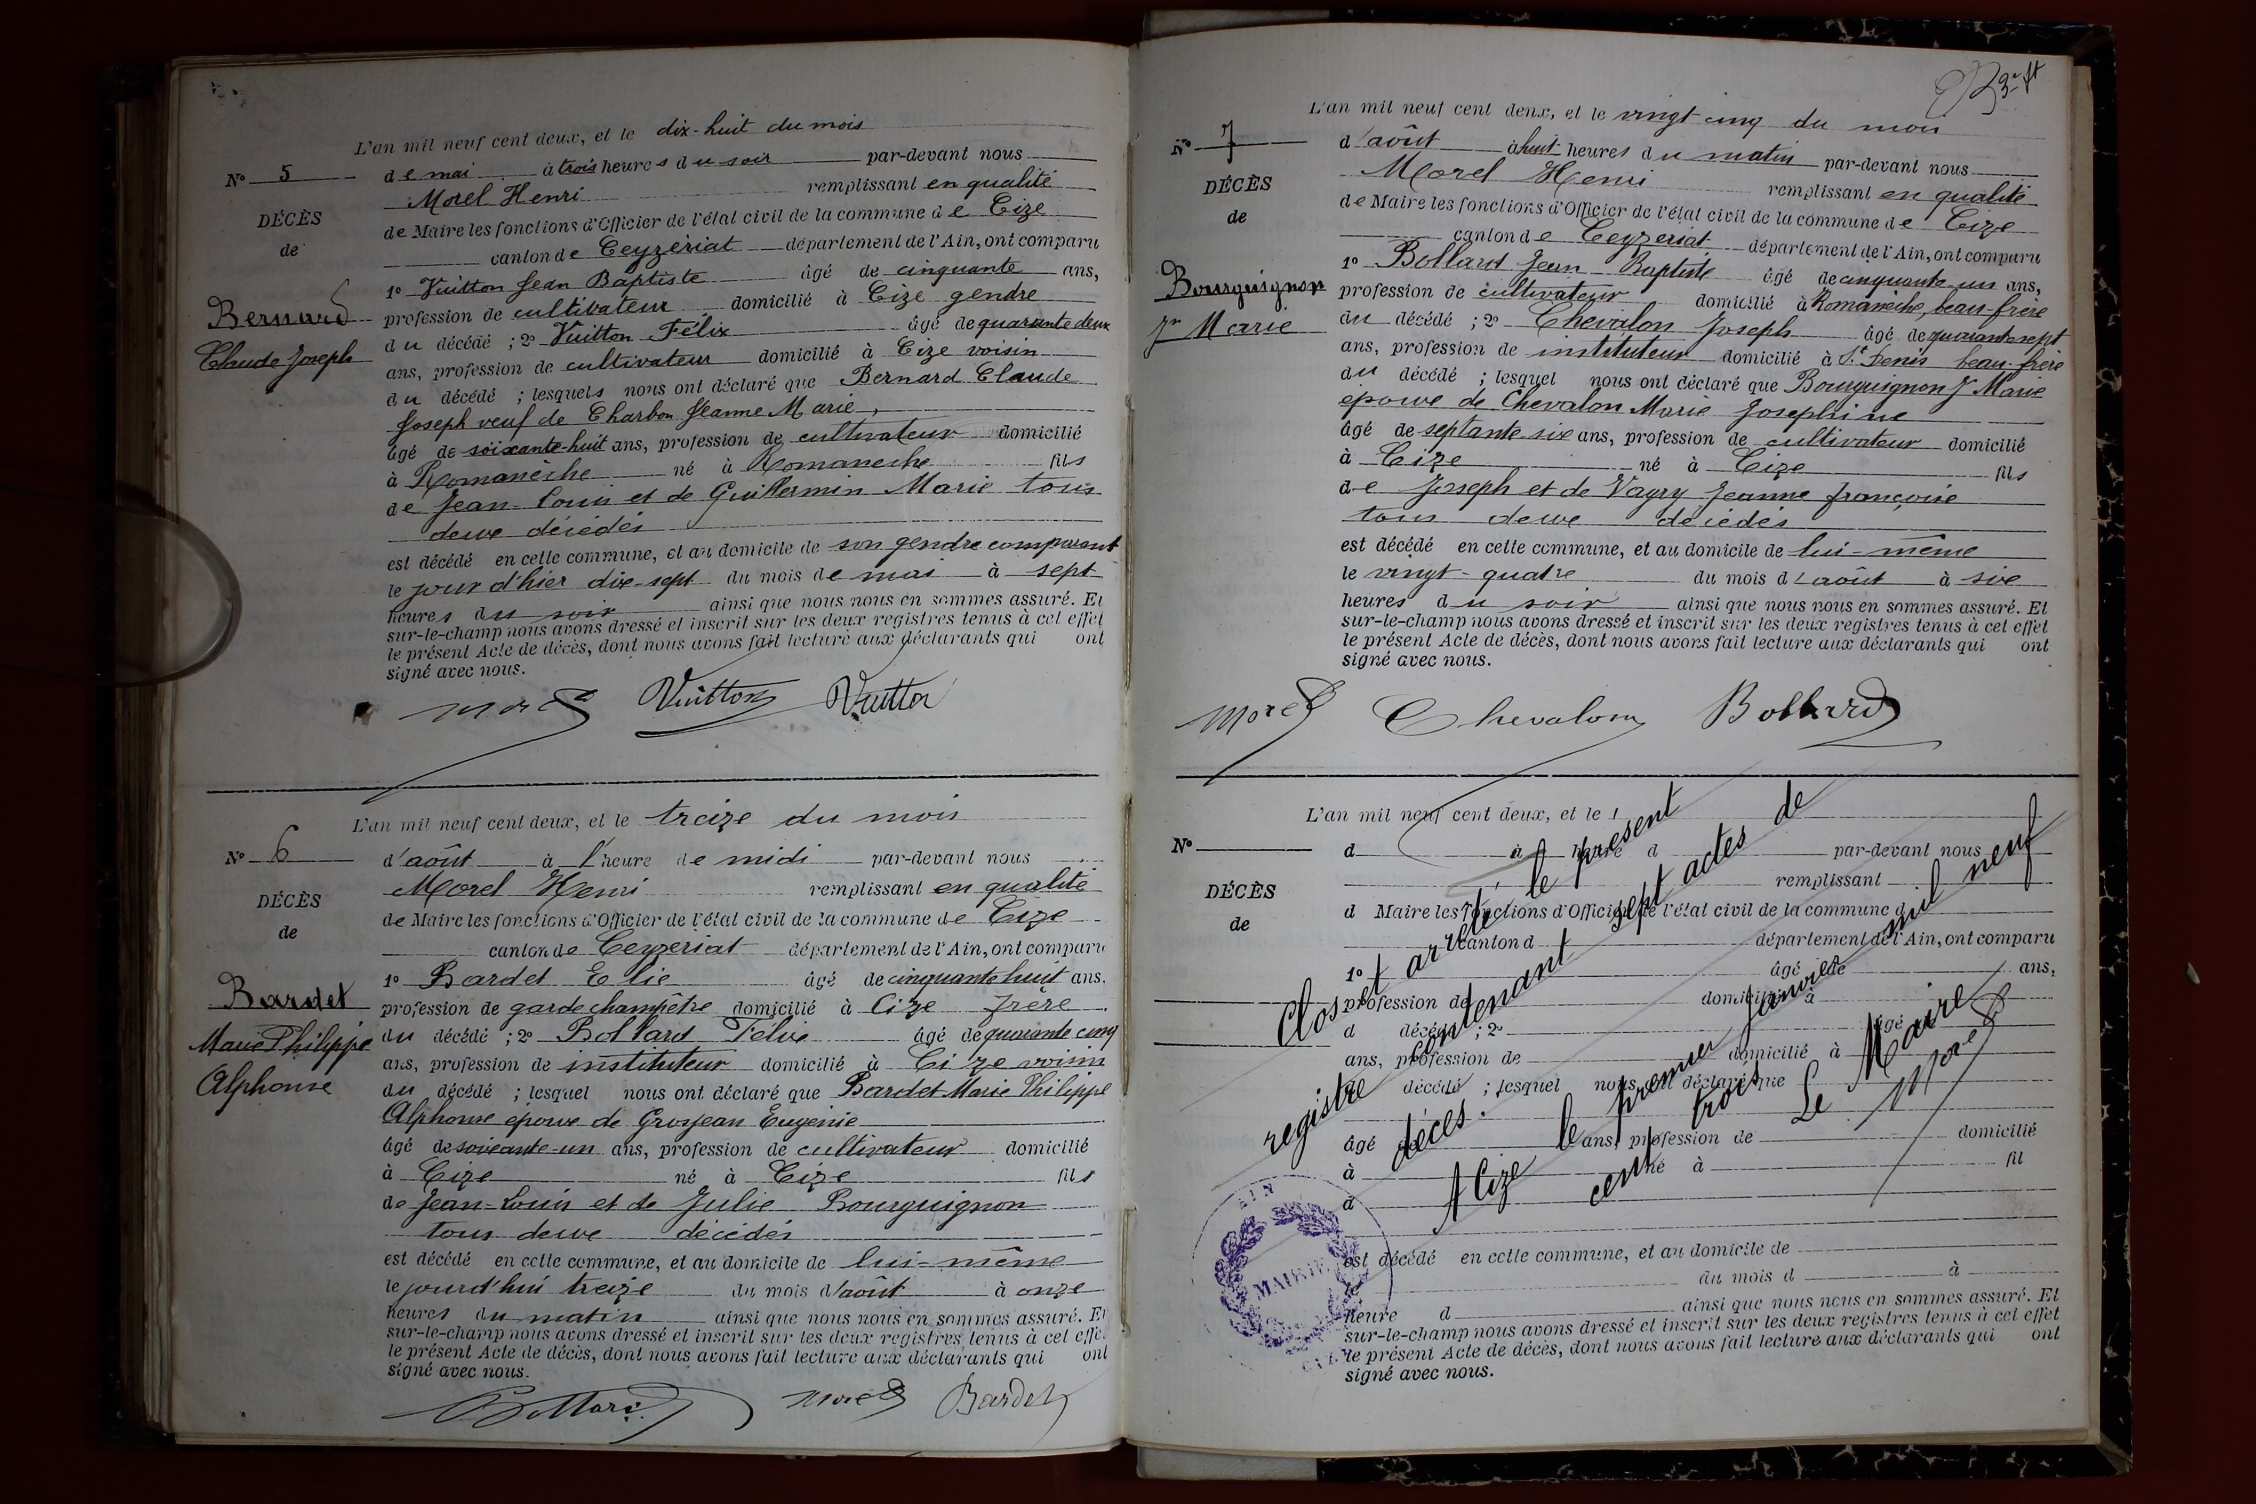 L'an mil neuf cent deux, et le dix-huit du mois
N° 5
de mai à trois heures du soir par-devant nous
Morel Henri remplissant en qualité
DÉCÈS
de Maire les fonctions d'Officier de l'état civil de la commune de Cize
de
canton de Ceyzeriat département de l'Ain, ont comparu
1° Vuitton Jean Baptiste âgé de cinquante ans,
Bernard
profession de cultivateur domicilié à Cize gendre
du décédé ; 2° Vuitton Félix âgé de quarante deux
Claude Joseph
ans, profession de cultivateur domicilié à Cize voisin
du décédé ; lesquels nous ont déclaré que Bernard Claude
Joseph veuf de Charbon Jeanne Marie,
âgé de soixante-huit ans, profession de cultivateur domicilié
à Romanèche né à Romaneche fils
de Jean-Louis et de Guillermin Marie tous
deux décédés
est décédé en cette commune, et au domicile de son gendre comparant
le jour d'hier dix-sept du mois de mai à sept
heures du soir ainsi que nous nous en sommes assuré. Et
sur-le-champ nous avons dressé et inscrit sur les deux registres tenus à cet effet
le présent Acte de décès, dont nous avons fait lecture aux déclarants qui ont
signé avec nous.
Morel Vuitton Vuitton
L'an mil neuf cent deux, et le treize du mois
N° 6
d'août à l'heure de midi par-devant nous
Morel Henri remplissant en qualité
DÉCÈS
de Maire les fonctions d'Officier de l'état civil de la commune de Cize
de
canton de Ceyzeriat département de l'Ain, ont comparu
1° Bardet Elie âgé de cinquante huit ans.
Bardet
profession de garde champêtre domicilié à Cize frère
Marie Philippe
du décédé ; 2° Bollard Félix âgé de quarante cinq
ans, profession de instituteur domicilié à Cize voisin
Alphonse
du décédé ; lesquel nous ont déclaré que Bardet Marie Philippe
Alphonse époux de Grosjean Eugénie
âgé de soixante-un ans, profession de cultivateur domicilié
à Cize né à Cize fils
de Jean-Louis et de Julie Bourguignon
tous deux décédés
est décédé en cette commune, et au domicile de lui-même
le jourd'hui treize du mois d'août à onze
heures du matin ainsi que nous nous en sommes assuré. Et
sur-le-champ nous avons dressé et inscrit sur les deux registres tenus à cet effet
le présent Acte de décès, dont nous avons fait lecture aux déclarants qui ont
signé avec nous.
Bollard Morel Bardet
L'an mil neuf cent deux, et le vingt cinq du mois
N° 7
d'août à huit heures du matin par-devant nous
Morel Henri remplissant en qualité
DÉCÈS
de Maire les fonctions d'Officier de l'état civil de la commune de Cize
de
canton de Ceyzeriat département de l'Ain, ont comparu
1° Bollard Jean Baptiste âgé de cinquante-un ans,
Bourguignon
profession de cultivateur domicilié à Romanèche, beau-frère
Jn Marie
du décédé ; 2° Chevalon Joseph âgé de quarante sept
ans, profession de instituteur domicilié à St Denis beau-frère
du décédé ; lesquel nous ont déclaré que Bourguignon Jn Marie
époux de Chevalon Marie Josephine
âgé de septante six ans, profession de cultivateur domicilié
à Cize né à Cize fils
de Joseph et de Vagry Jeanne françoise
tous deux décédés
est décédé en cette commune, et au domicile de lui-même
le vingt-quatre du mois d'août à six
heures du soir ainsi que nous nous en sommes assuré. Et
sur-le-champ nous avons dressé et inscrit sur les deux registres tenus à cet effet
le présent Acte de décès, dont nous avons fait lecture aux déclarants qui ont
signé avec nous.
Morel Chevalon Bollard
L'an mil neuf cent deux, et le
N°
d à heure d par-devant nous
remplissant
DÉCÈS
d Maire les fonctions d'Officier de l'état civil de la commune d
de
canton d département de l'Ain, ont comparu
1° âgé de ans,
profession de domicilié à
d décédé ; 2° âgé
ans, profession de domicilié à
d décédé ; lesquel nous ont déclaré que
âgé de ans, profession de domicilié
à né à fil
d
est décédé en cette commune, et au domicile de
le du mois d à
heure d ainsi que nous nous en sommes assuré. Et
sur-le-champ nous avons dressé et inscrit sur les deux registres tenus à cet effet
le présent Acte de décès, dont nous avons fait lecture aux déclarants qui ont
signé avec nous.
Clos et arreté le présent
registre contenant sept actes de
décès.
A Cize le premier janvier mil neuf
cent trois
Le Maire
Morel
AIN
MAIRIE
CIZE